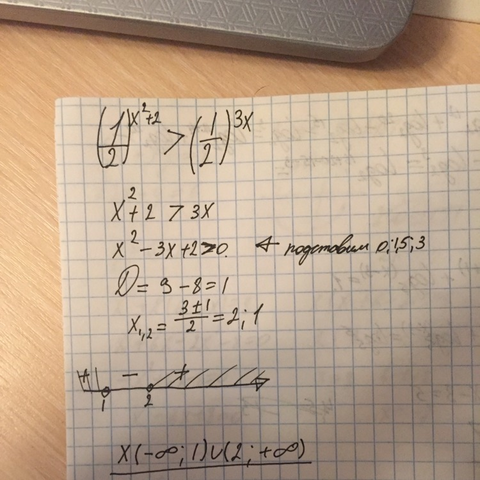 (1/2)^(x²+2) > (1/2)^(3x)
x²+2 > 3x
x²-3x+2>0 ← подставим 0;1,5;3
D = 9-8=1
x₁,₂ = (3±1)/2 = 2;1
+ - +
1 2
x(-∞;1)∪(2;+∞)